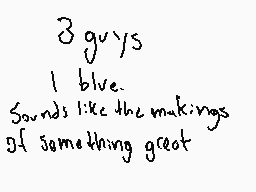 3 guys
1 blue.
Sounds like the makings
of something great